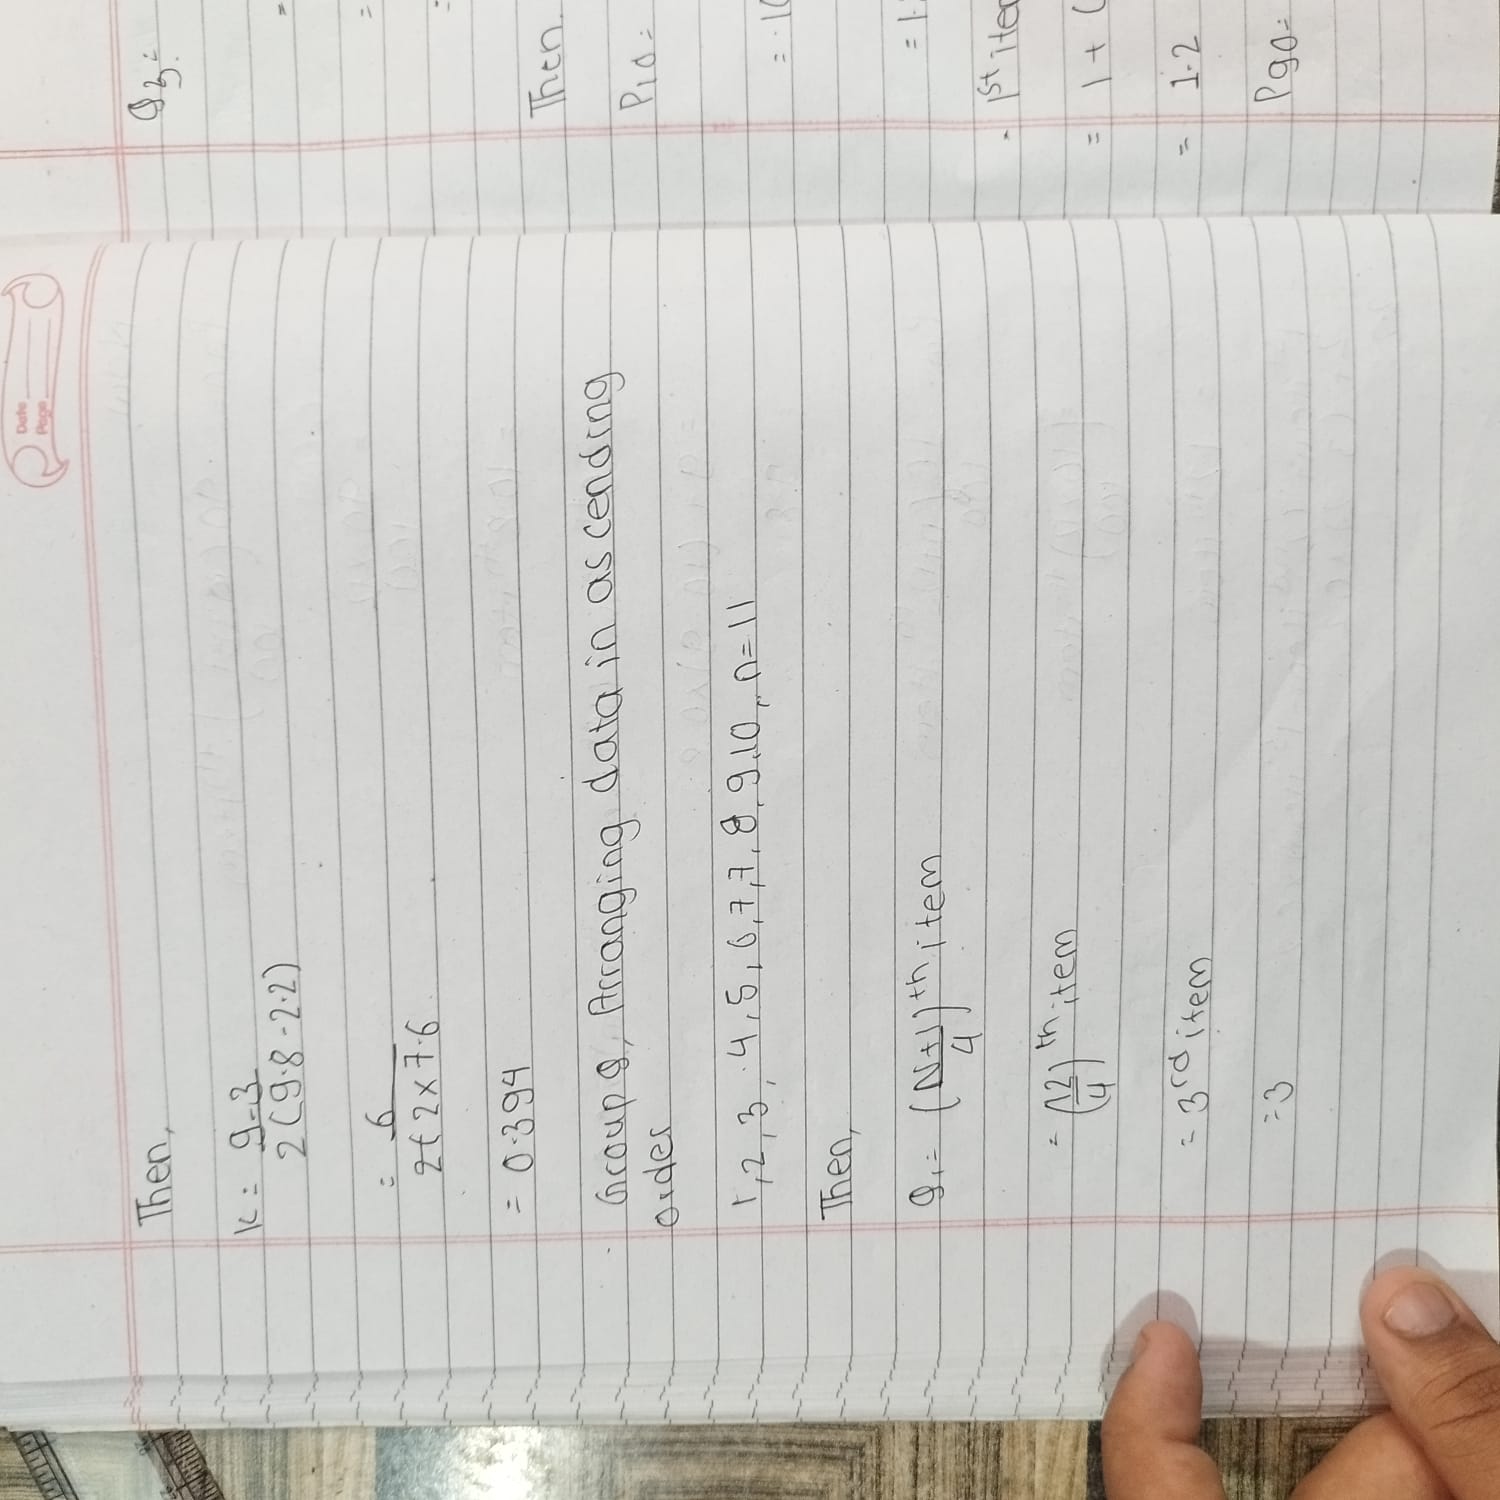 Date
Page
Then,
K = 9-3
2(9.8 - 2.2)
= 6
2 × 7.6
= 0.394
Group 8, Arranging data in ascending
order
1, 2, 3, 4, 5, 6, 7, 7, 8, 9, 10, n = 11
Then,
Q1 = (N+1)th item
4
= (12)th item
4
= 3rd item
= 3
Q3 =
=
=
Then
P10 =
1st
= 1 +
= 1.2
P90 =